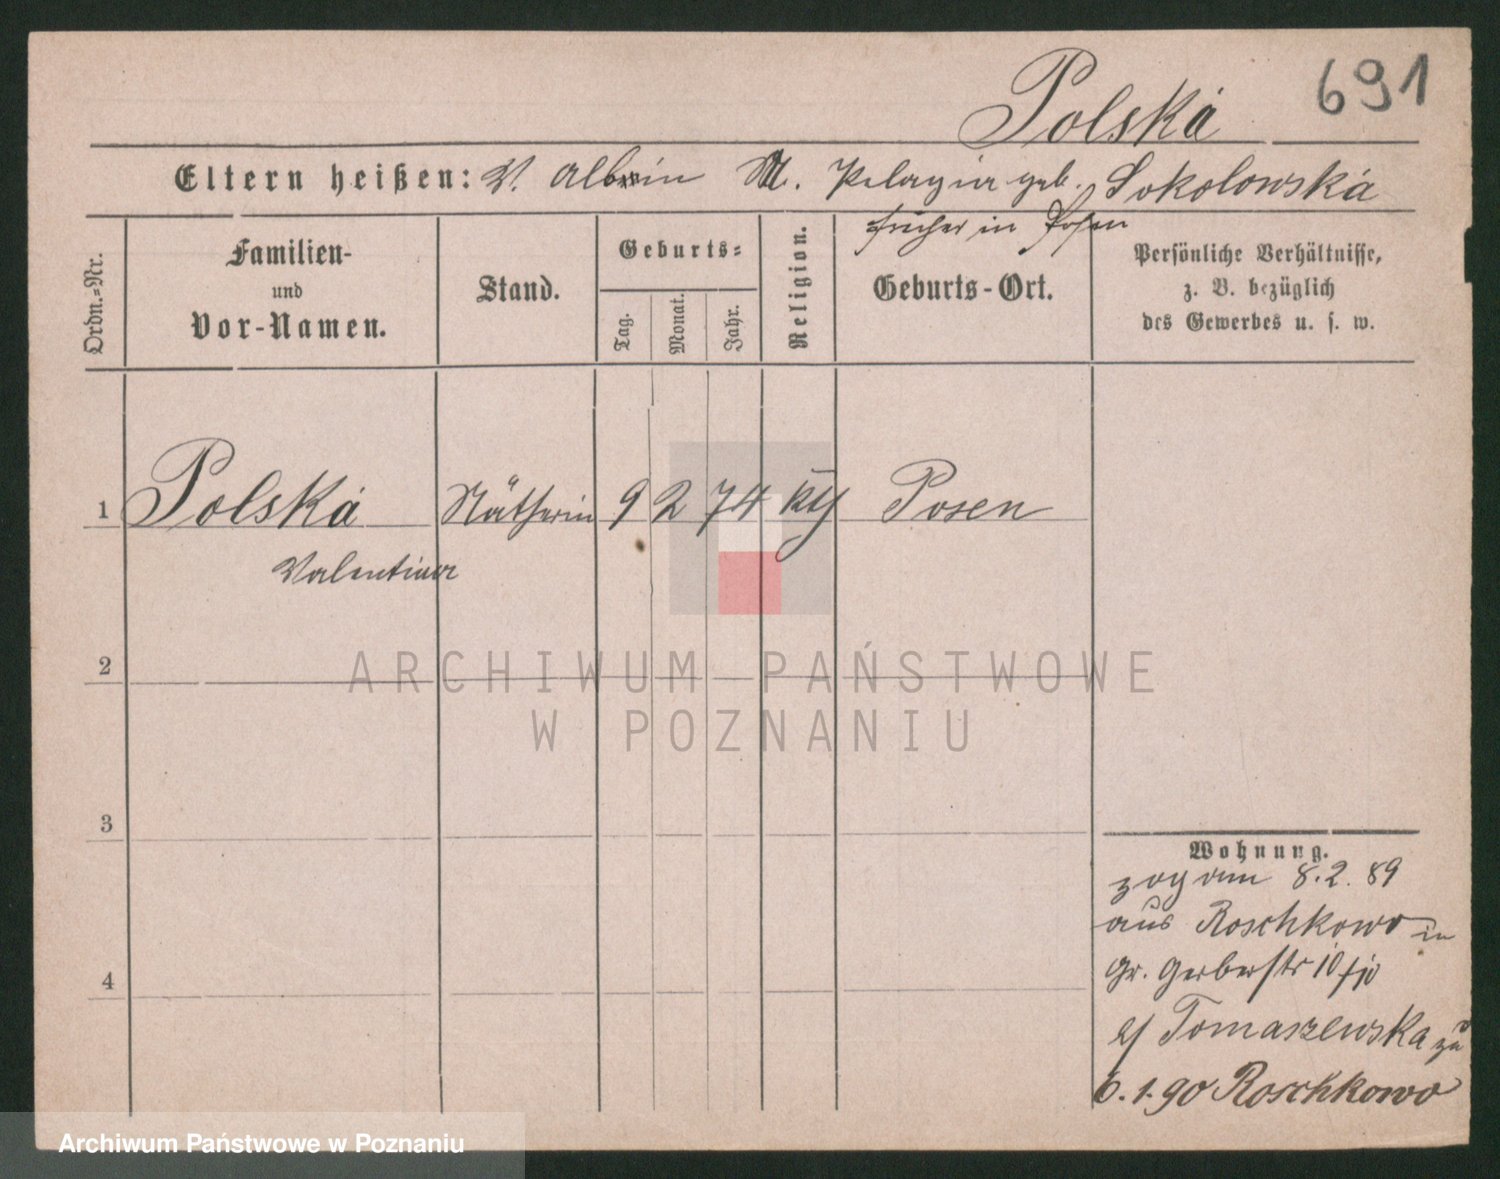 Polska
691
Eltern heißen: V. Albin M. Pelagia geb. Sokolowska
früher in Posen
Ordn.-Nr.
Familien-
und
Vor-Namen.
Stand.
Geburts-
Tag.
Monat.
Jahr.
Religion.
Geburts-Ort.
Persönliche Verhältnisse,
z. B. bezüglich
des Gewerbes u. s. w.
1 Polska Nätherin 9 2 74 kth Posen
Valentina
2
3
4
Wohnung.
zog am 8.2.89
aus Roschkowo in
Gr. Gerberstr 10
b/ Tomaszewska zu
6.1.90 Roschkowo
ARCHIWUM PAŃSTWOWE
W POZNANIU
Archiwum Państwowe w Poznaniu